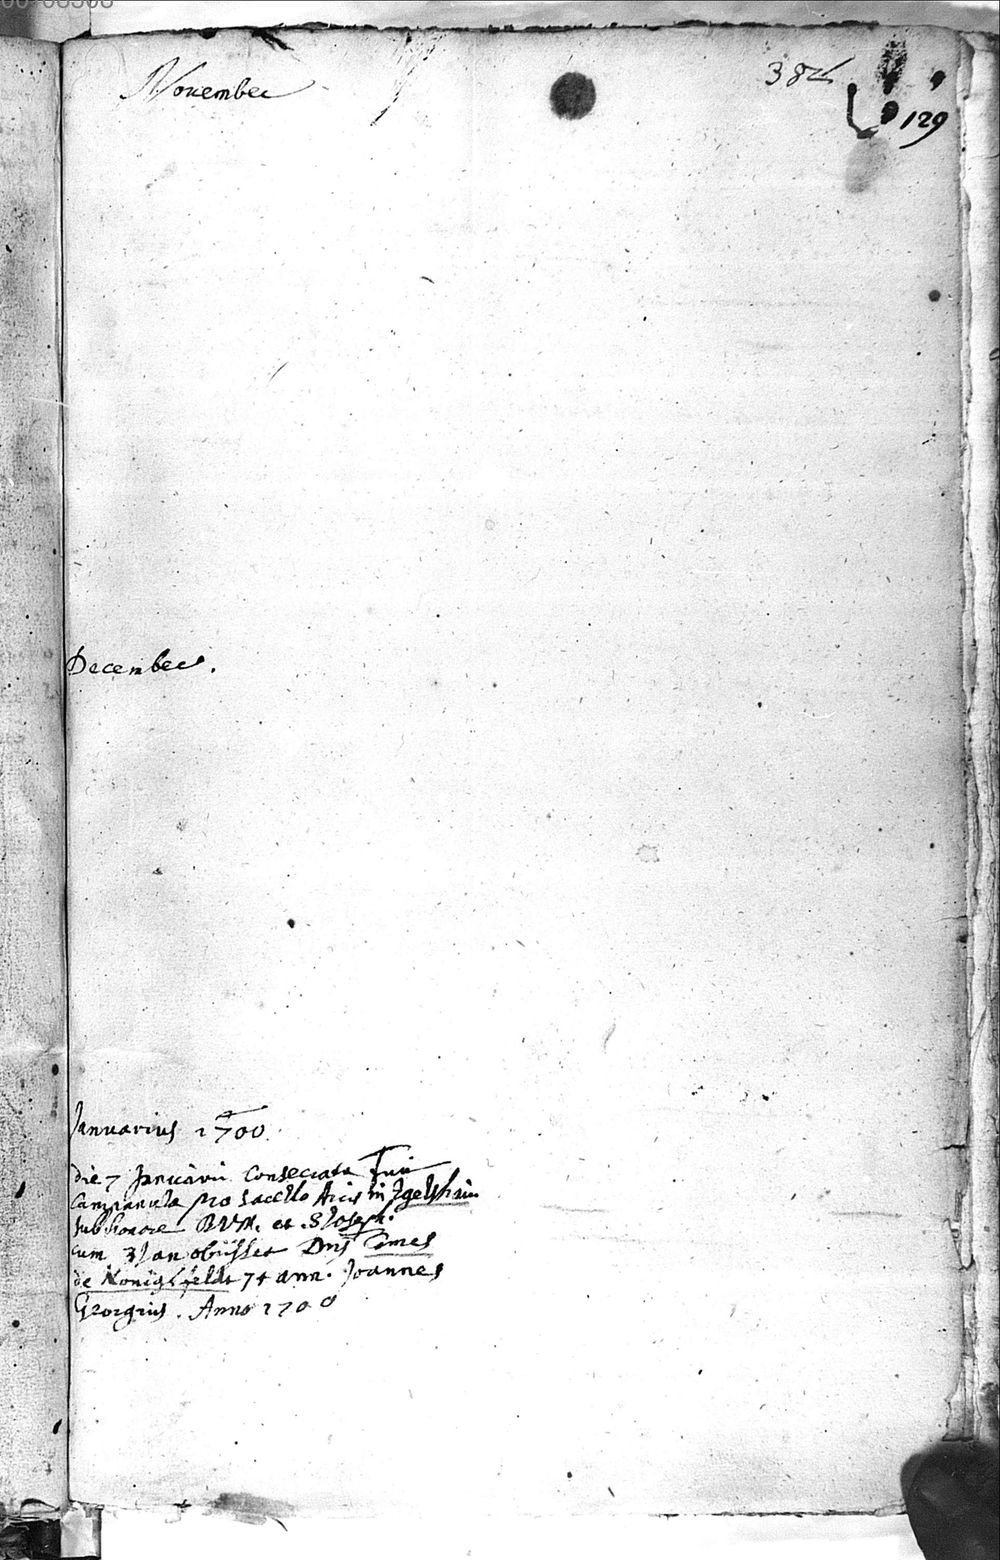 November
384
129
December.
Januarius 1700
die 7 Januarii consecrata fuit
Campanula pro sacello Arcis in Igelsheim
sub honore B.V.M. et S Joseph.
cum 3 Jan obiisset Dns Comes
de Königsfeldt 74 ann. Joannes
Georgius. Anno 1700